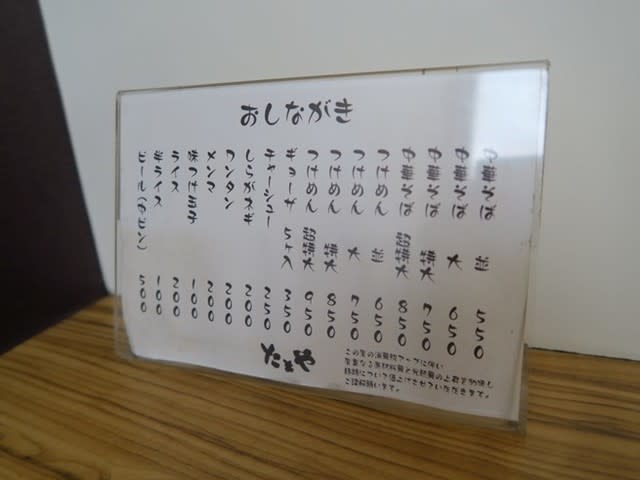 おしながき
中華そば 並 550
中華そば 大 650
中華そば 特大 750
中華そば 超特大 850
つけめん 並 650
つけめん 大 750
つけめん 特大 850
つけめん 超特大 950
ギョーザ 5ヶ入 350
チャーシュー 250
しらがネギ 200
ワンタン 200
メンマ 200
味つけ玉子 100
ライス 200
半ライス 100
ビール(中ビン) 500
たまや